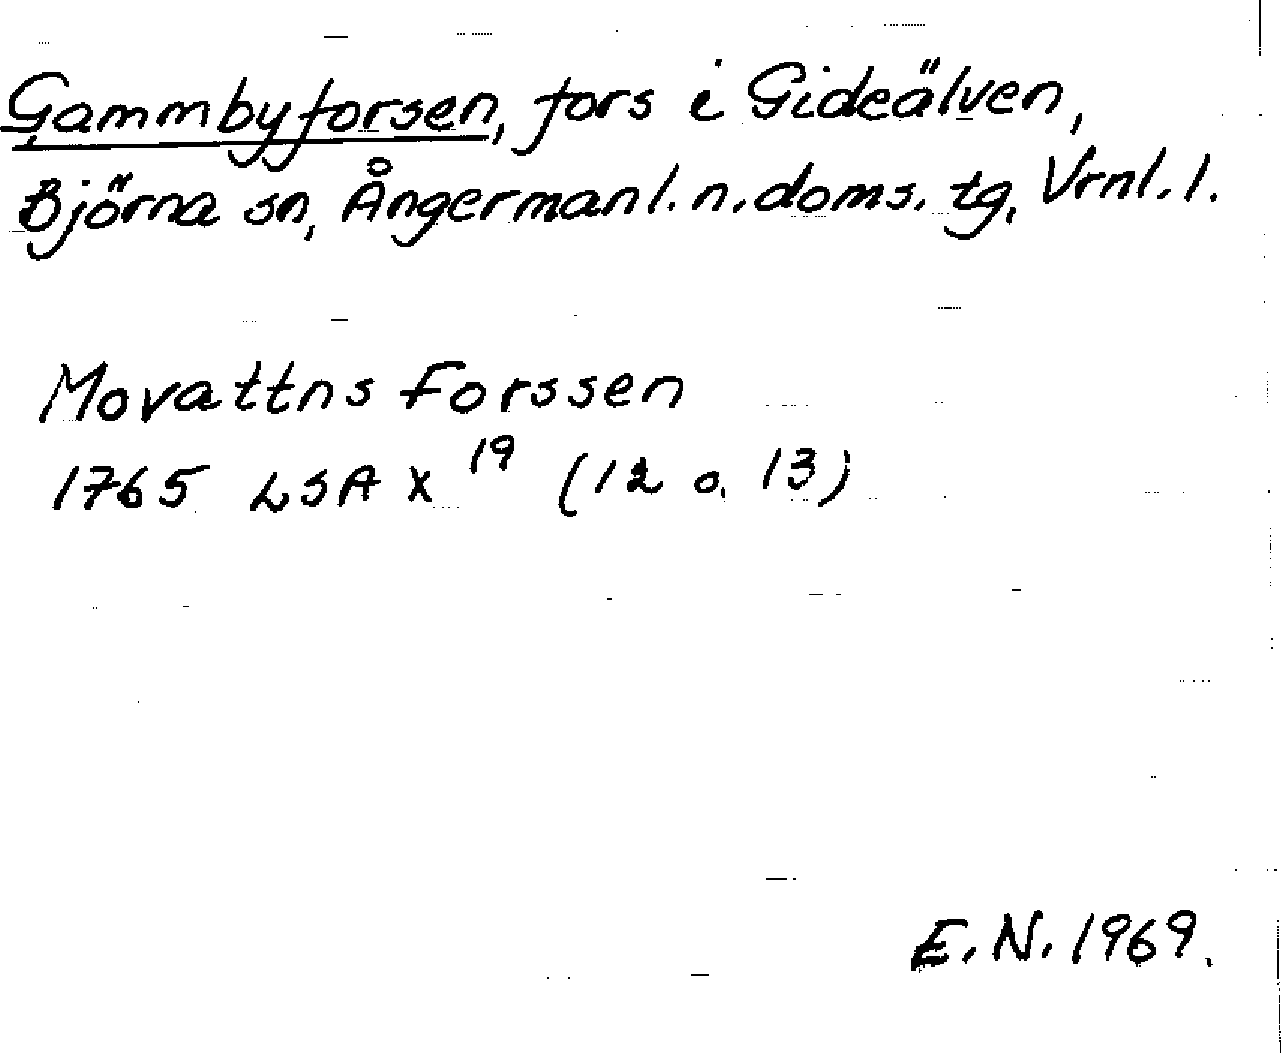 Gammbyforsen, fors i Gideälven,
Björna sn, Ångermanl. n. doms. tg, Vrnl. l.
Movattns Forssen
1765 LSA X 19 (12 o. 13)
E. N. 1969.